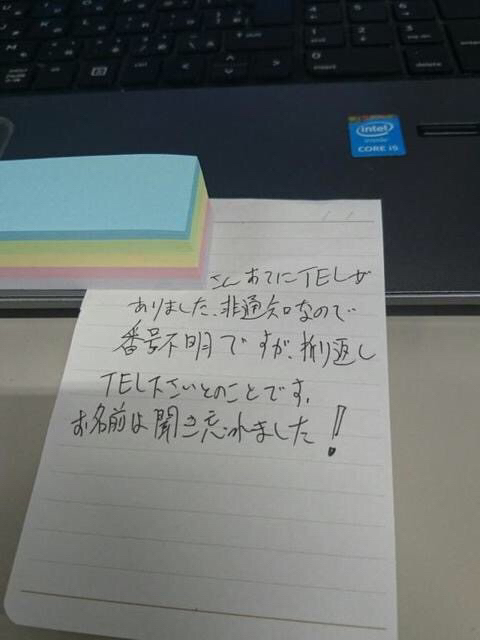 intel
inside
CORE i5
delete
insert
enter
ctrl
さんあてにTELが
ありました、非通知なので
番号不明ですが、折り返し
TEL下さいとのことです。
お名前は聞き忘れました!